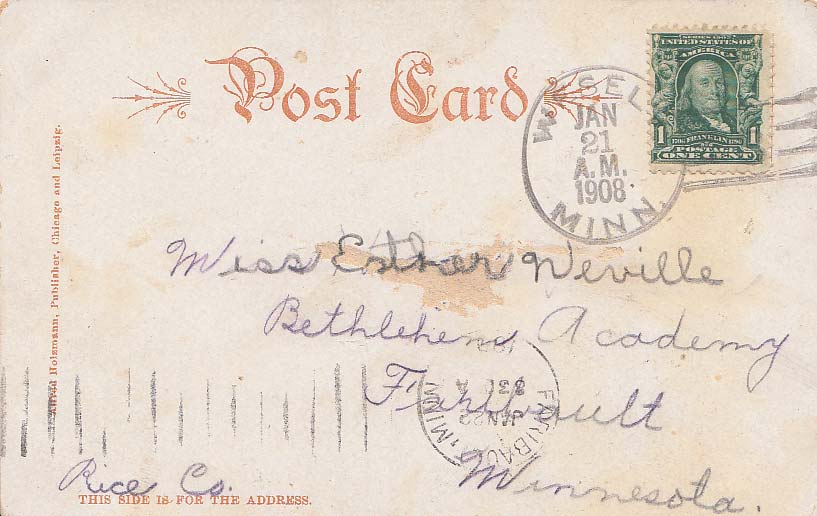 Post Card
SERIES 1902
UNITED STATES OF
AMERICA
1 1
FRANKLIN
POSTAGE
ONE CENT
JAN
21
A.M.
1908
MINN.
Miss Esther Neville
Bethlehem Academy
Faribault
Minnesota.
Rice Co.
FARIBAULT, MINN.
JAN 22
THIS SIDE IS FOR THE ADDRESS.
Alfred Holzmann, Publisher, Chicago and Leipzig.